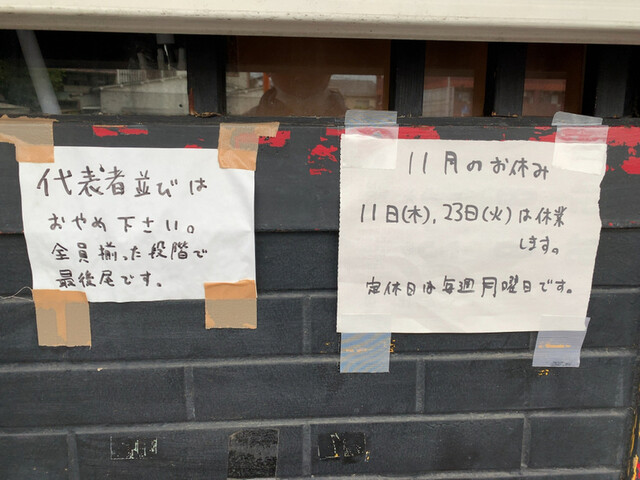 代表者並びは
おやめ下さい。
全員揃った段階で
最後尾です。
11月のお休み
11日(木), 23日(火)は休業
します。
定休日は毎週月曜日です。